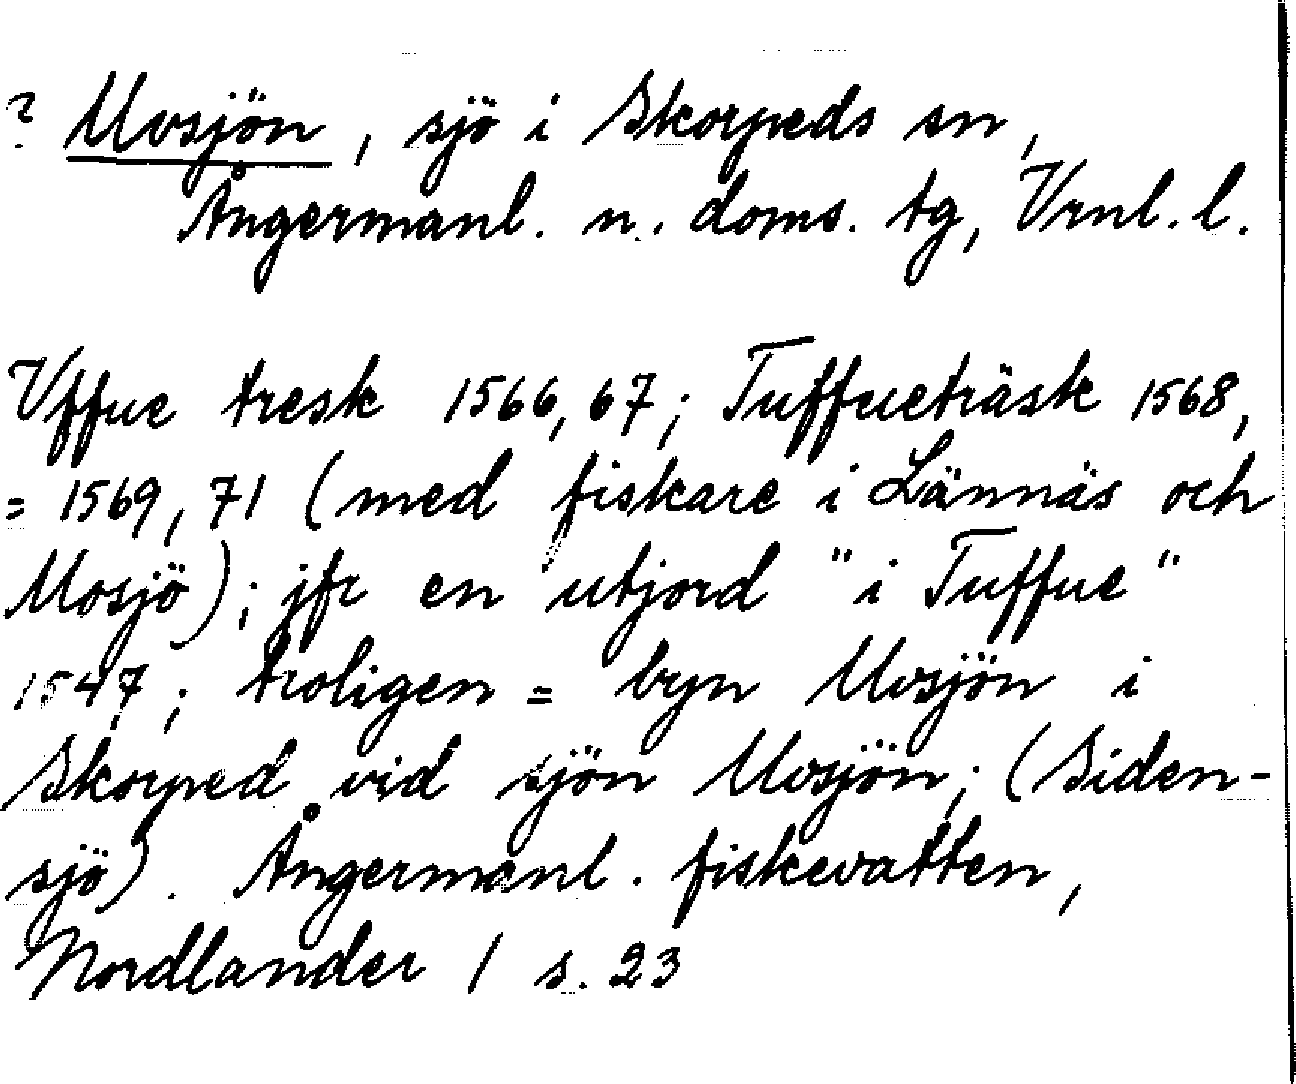 ? Uvsjön, sjö i Skorpeds sn,
Ångermanl. n. doms. tg, Vrnl. l.
Vffue tresk 1566, 67; Tuffueträsk 1568,
= 1569, 71 (med fiskare i Lännäs och
Mosjö); jfr en utjord "i Tuffue"
1547; troligen = byn Uvsjön i
Skorped vid sjön Uvsjön; (Siden-
sjö). Ångermanl. fiskevatten,
Nordlander / s. 23